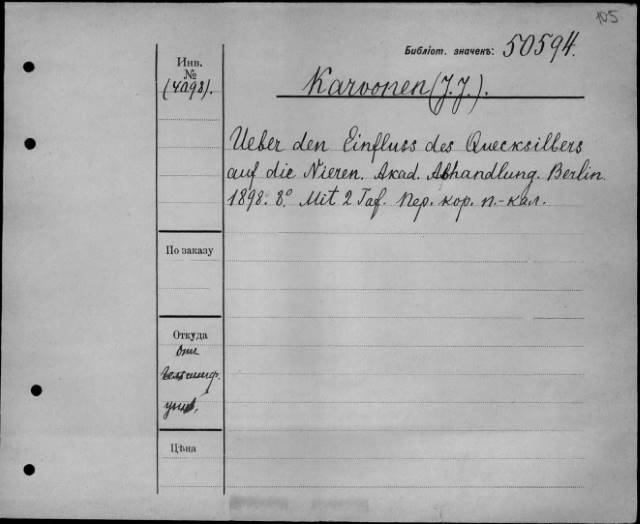 105
Библіот. значекъ: 50594.
Инв.
№
(4098).
Karvonen (J. J.).
Ueber den Einfluss des Quecksilbers
auf die Nieren. Akad. Abhandlung. Berlin.
1898. 8° Mit 2 Taf. Пер. кор. п.-кал.
По заказу
Откуда
Отъ
Гельсингф.
унив.
Цѣна